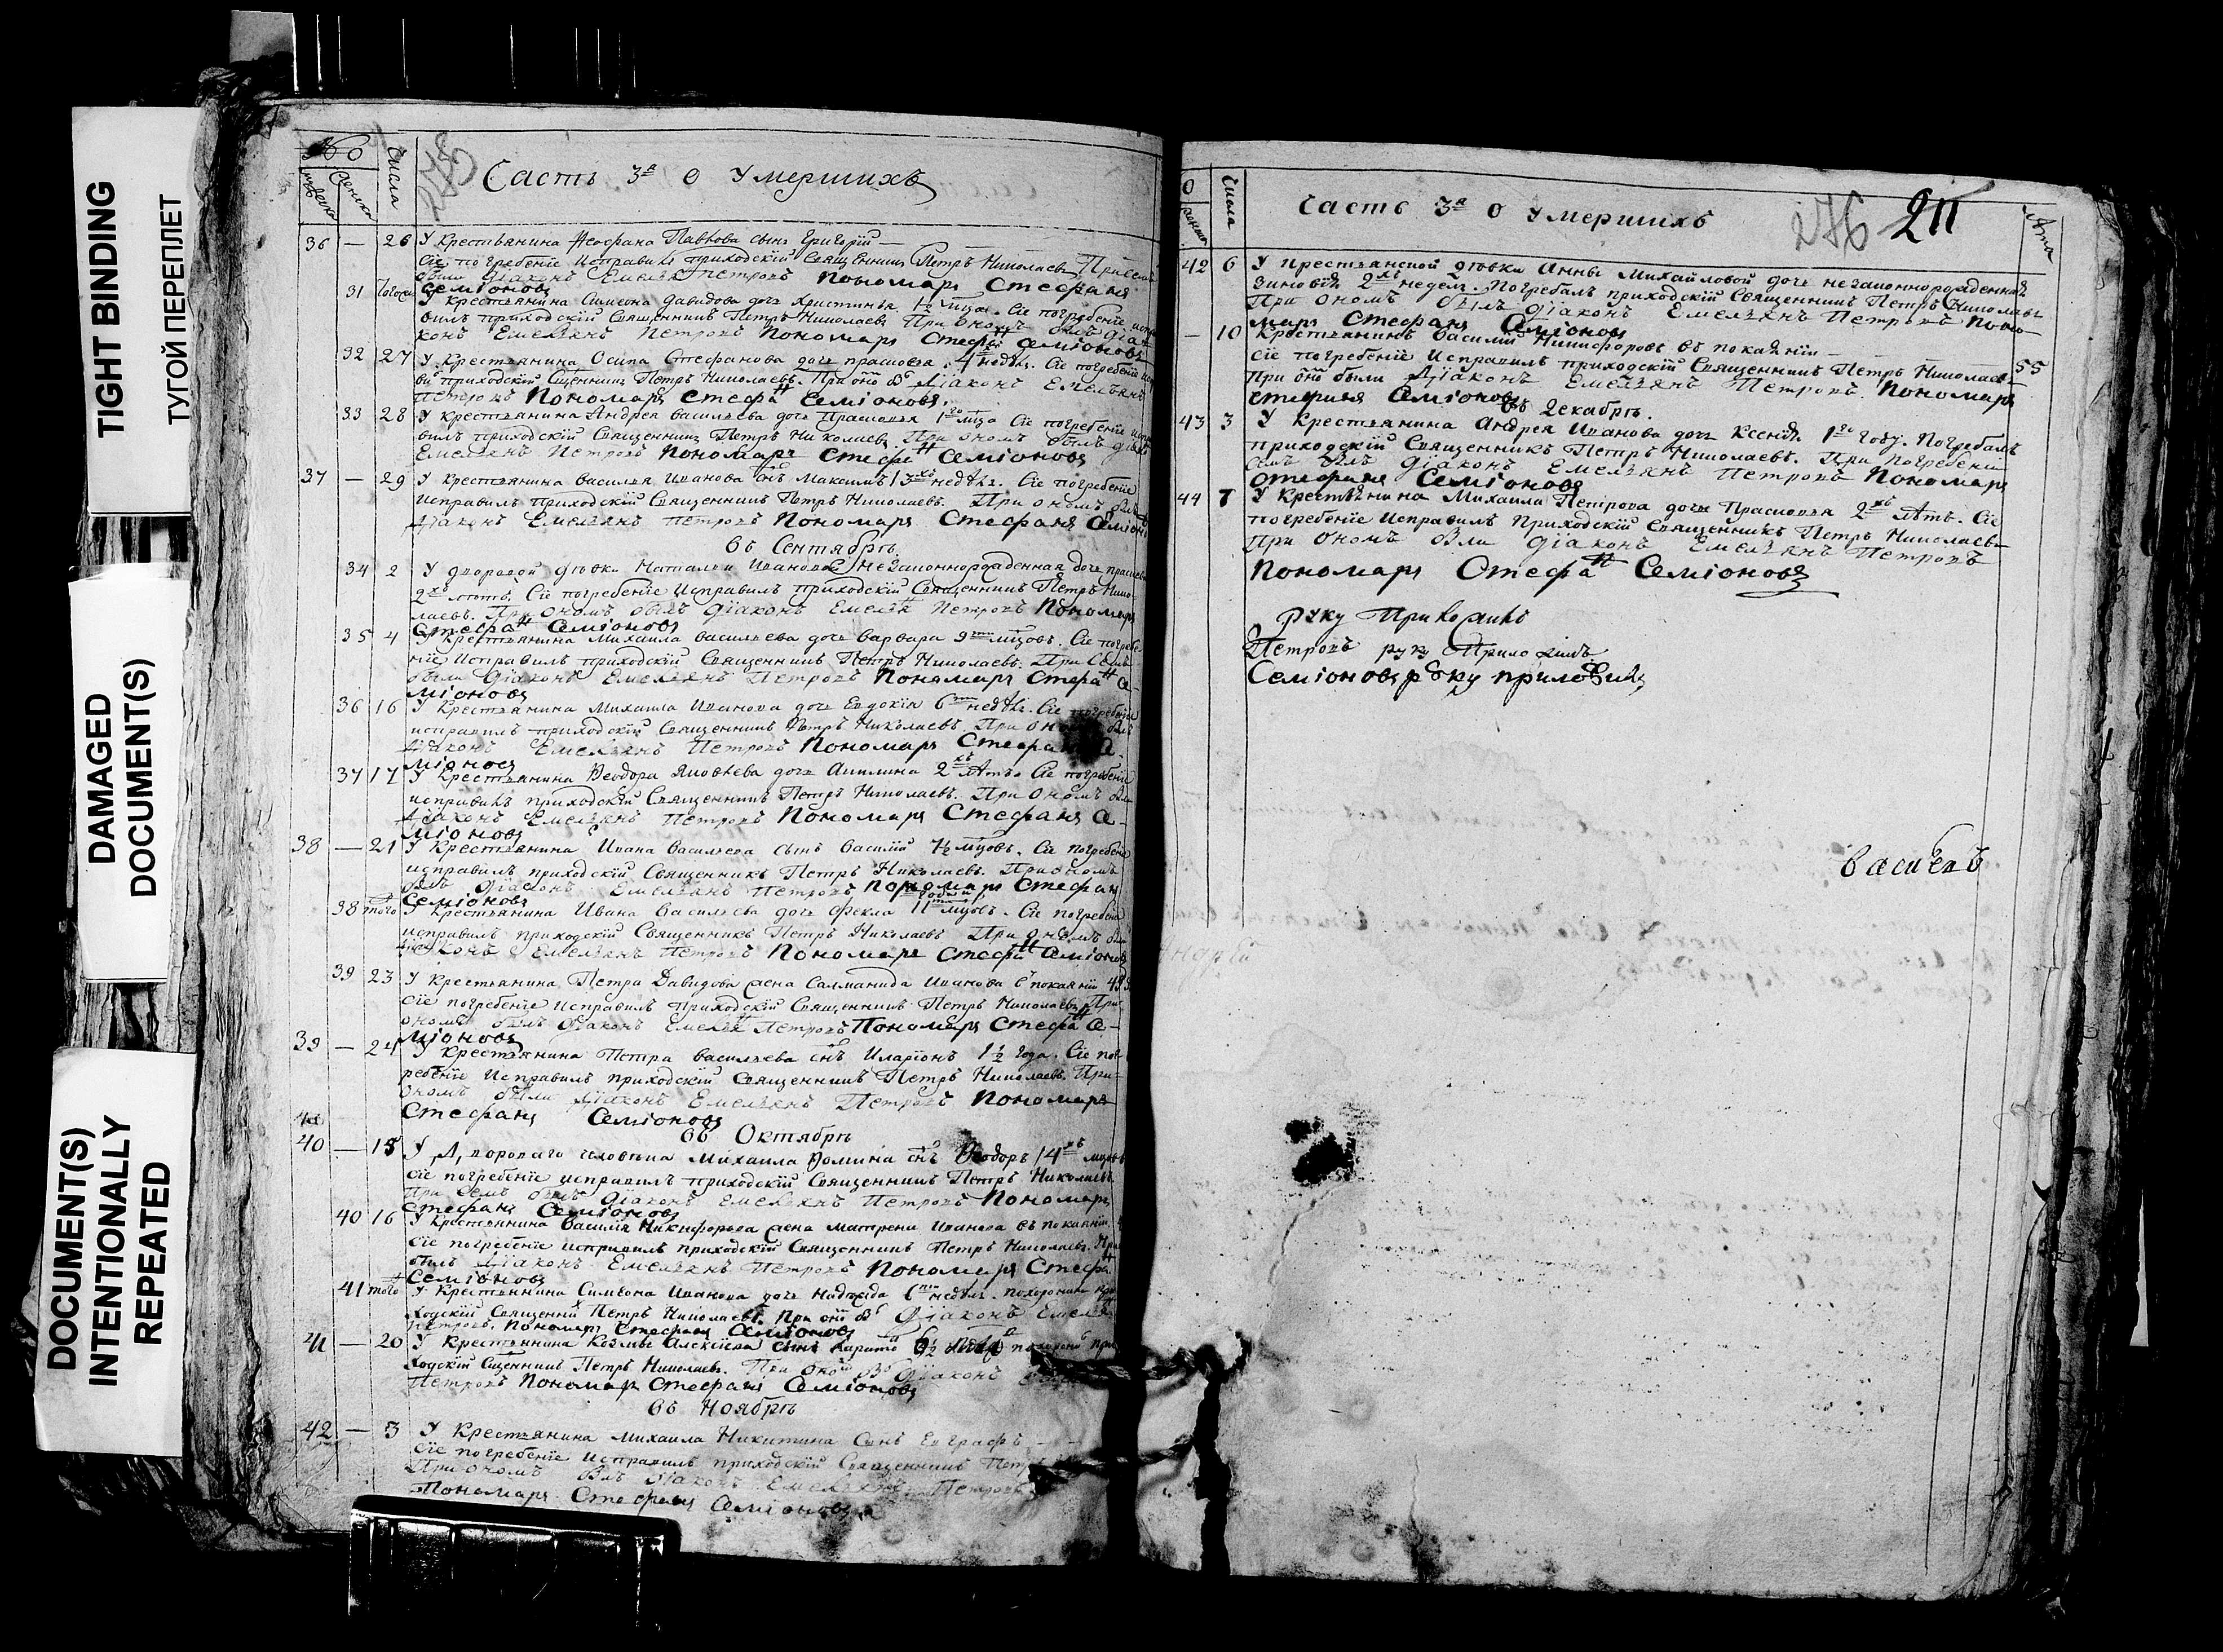 TIGHT BINDING
ТУГОЙ ПЕРЕПЛЕТ
DAMAGED
DOCUMENT(S)
DOCUMENT(S)
INTENTIONALLY
REPEATED
Числа
Часть 3я О Умершихъ
36 — 26 У Крестьянина Павлова сынъ Григорій —
Сіе погребеніе Исправилъ приходскій Священникъ Петръ Николаевъ
были Діаконъ Емелья Петровъ Пономарь Стефанъ
Семіоновъ
31 У Крестьянина Симеона Давидова дочь Христинья 1½ Сіе погребеніе
вилъ приходскій Священникъ Петръ Николаевъ При ономъ былъ Діа-
конъ Емельянъ Петровъ Пономарь Стефанъ Семіоновъ
32 27 У Крестьянина Осипа Стефанова дочь прасковья 4 недѣль. Сіе погребеніе
приходскій Сщенникъ Петръ Николаевъ. При Діаконъ Емельянъ
Петровъ Пономарь Стефанъ Семіоновъ.
33 28 У Крестьянина Андрея Васильева дочь Прасковья 1го мца Сіе погребеніе
вилъ приходскій Священникъ Петръ Николаевъ При ономъ былъ
Емельянъ Петровъ Пономарь Стефанъ Семіоновъ
37 — 29 У Крестьянина Василья Иванова снъ Максимъ 3хъ недѣль. Сіе погребеніе
Исправилъ приходскій Священникъ Петръ Николаевъ. При ономъ былъ
Діаконъ Емельянъ Петровъ Пономарь Стефанъ Семіон
въ Сентябрѣ
34 2 У дворовой дѣвки Натальи Ивановой незаконнорожденная дочь
2хъ лѣтъ. Сіе погребеніе Исправилъ приходскій Священникъ Петръ Нико-
лаевъ. При ономъ былъ Діаконъ Емельянъ Петровъ Пономарь
Стефанъ Семіоновъ
35 4 У Крестьянина Михаила Васильева дочь Варвара 9ти мцовъ. Сіе погребе-
ніе Исправилъ приходскій Священникъ Петръ Николаевъ. При Семъ
были Діаконъ Емельянъ Петровъ Пономарь Стефанъ Се-
міоновъ
36 16 У Крестьянина Михаила Иванова дочь Евдокія 6ти недѣль. Сіе погребеніе
исправилъ приходскій Священникъ Петръ Николаевъ. При
Діаконъ Емельянъ Петровъ Пономарь Стефанъ Се-
міоновъ
37 17 У Крестьянина Ѳеодора Яковлева дочь Акилина 2хъ лѣтъ. Сіе погребеніе
исправилъ приходскій Священникъ Петръ Николаевъ. При ономъ были
Діаконъ Емельянъ Петровъ Пономарь Стефанъ Се-
міоновъ
38 — 21 У Крестьянина Ивана Васильева сынъ Василій мцовъ. Сіе погребеніе
исправилъ приходскій Священникъ Петръ Николаевъ. При ономъ
былъ Діаконъ Емельянъ Петровъ Пономарь Стефанъ
Семіоновъ
38 того У Крестьянина Ивана Васильева дочь Фекла 11 мцовъ. Сіе погребеніе
исправилъ приходскій Священникъ Петръ Николаевъ При ономъ были
Діаконъ Емельянъ Петровъ Пономарь Стефанъ Семіонов
39 23 У Крестьянина Петра Давидова жена Саламанида Иванова въ покаяніи
сіе погребеніе исправилъ Приходскій Священникъ Петръ Николаевъ. При
ономъ былъ Діаконъ Емельянъ Петровъ Пономарь Стефанъ Се-
міоновъ
39 — 24 У Крестьянина Петра Васильева снъ Иларіонъ 1½ года. Сіе пог-
ребеніе Исправилъ приходскій Священникъ Петръ Николаевъ. При
ономъ были Діаконъ Емельянъ Петровъ Пономарь
Стефанъ Семіоновъ
въ Октябрѣ
40 — 15 У Двороваго человѣка Михаила Ѳомина снъ Ѳеодоръ
сіе погребеніе исправилъ приходскій Священникъ Петръ Николаевъ
При семъ былъ Діаконъ Емельянъ Петровъ Пономарь
Стефанъ Семіоновъ
40 16 У Крестьянина Василія Никифорова жена Матрена Иванова въ покаяніи
сіе погребеніе исправилъ приходскій Священникъ Петръ Николаевъ.
былъ Діаконъ Емельянъ Петровъ Пономарь Стефанъ
Семіоновъ
41 того У Крестьянина Симеона Иванова дочь Надежда 6ти недѣль. похоронилъ при-
ходскій Священникъ Петръ Николаевъ. При Діаконъ Емелья
Петровъ. Пономарь Стефанъ Семіоновъ
41 — 20 У Крестьянина Козьмы Алексіева сынъ
ходскій Сщенникъ Петръ Николаевъ. При Діаконъ
Петровъ Пономарь Стефанъ Семіоновъ
въ Ноябрѣ
42 — 3 У Крестьянина Михаила Никитина Сынъ Евграфъ —
Сіе погребеніе Исправилъ приходскій Священникъ Петр
При ономъ былъ Діаконъ Емельянъ Петровъ
Пономарь Стефанъ Семіоновъ
Числа
Часть 3я О Умершихъ
276 211
Лѣта
42 6 У Крестьянской дѣвки Анны Михайловой дочь незаконнорожденная
Зиновія 2хъ недѣль. Погребалъ приходскій Священникъ Петръ Николаевъ
При ономъ былъ Діаконъ Емельянъ Петровъ Поно-
марь Стефанъ Семіоновъ
— 10 Крестьянинъ Василій Никифоровъ въ покаяніи — 55
сіе погребеніе Исправилъ приходскій Священникъ Петръ Николаевъ
При были Діаконъ Емельянъ Петровъ. Пономарь
Стефанъ Семіоновъ
въ Декабрѣ.
43 3 У Крестьянина Андрея Иванова дочь Ксенія 1го году. Погребалъ
приходскій Священникъ Петръ Николаевъ. При погребеніи
семъ былъ Діаконъ Емельянъ Петровъ Пономарь
Стефанъ Семіоновъ
44 7 У Крестьянина Михаила Петрова дочь Прасковья 2хъ лѣтъ. Сіе
погребеніе Исправилъ Приходскій Священникъ Петръ Николаевъ
При ономъ были Діаконъ Емельянъ Петровъ
Пономарь Стефанъ Семіоновъ
руку Приложилъ
Петровъ руку Приложилъ
Семіоновъ руку приложилъ
Васильевъ